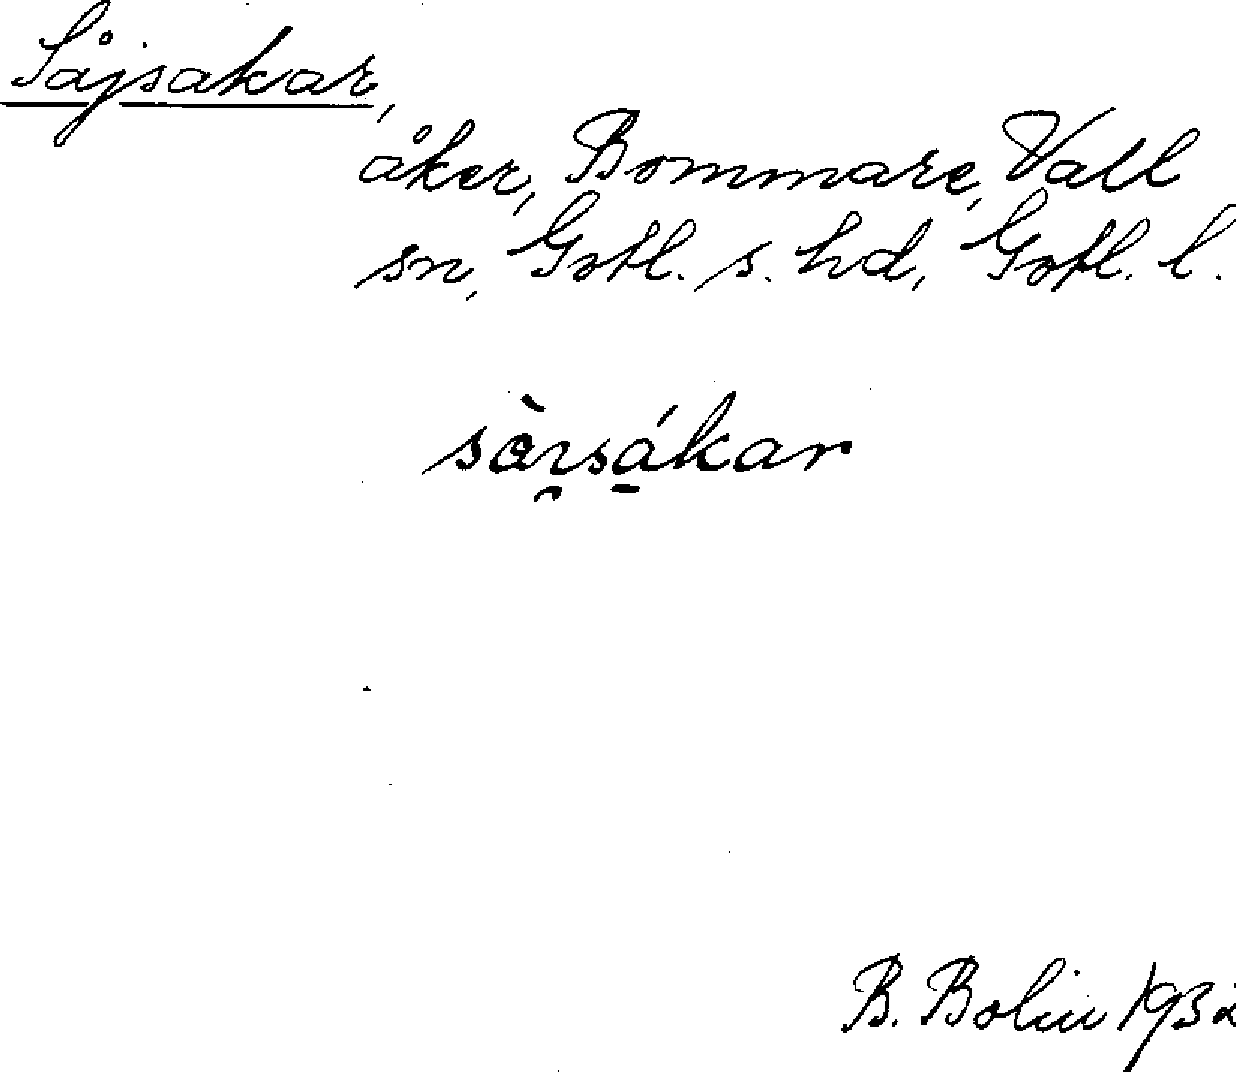 Såjsakar,
åker, Bommare, Vall
sn, Gotl. s. hd, Gotl. l.
sàrsákar
B. Bolin 1932